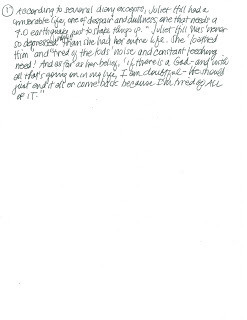 ① According to several diary excerpts, Juliet Hill had a
miserable life, one of despair and dullness, one that needs a
9.0 earthquake just to shake things up." Juliet Hill was "never
so depressed" than she had her entire life. She "loathed
Him" and "tired of the kids' noise and constant feeding
need! And as far as her being, "if there is a God - and with
all that's going on in my life, I am doubtful - He should
just end it all or come back because I'm tired of ALL
OF IT."